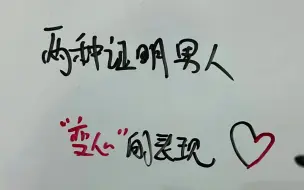 两种证明男人
"变心"的表现